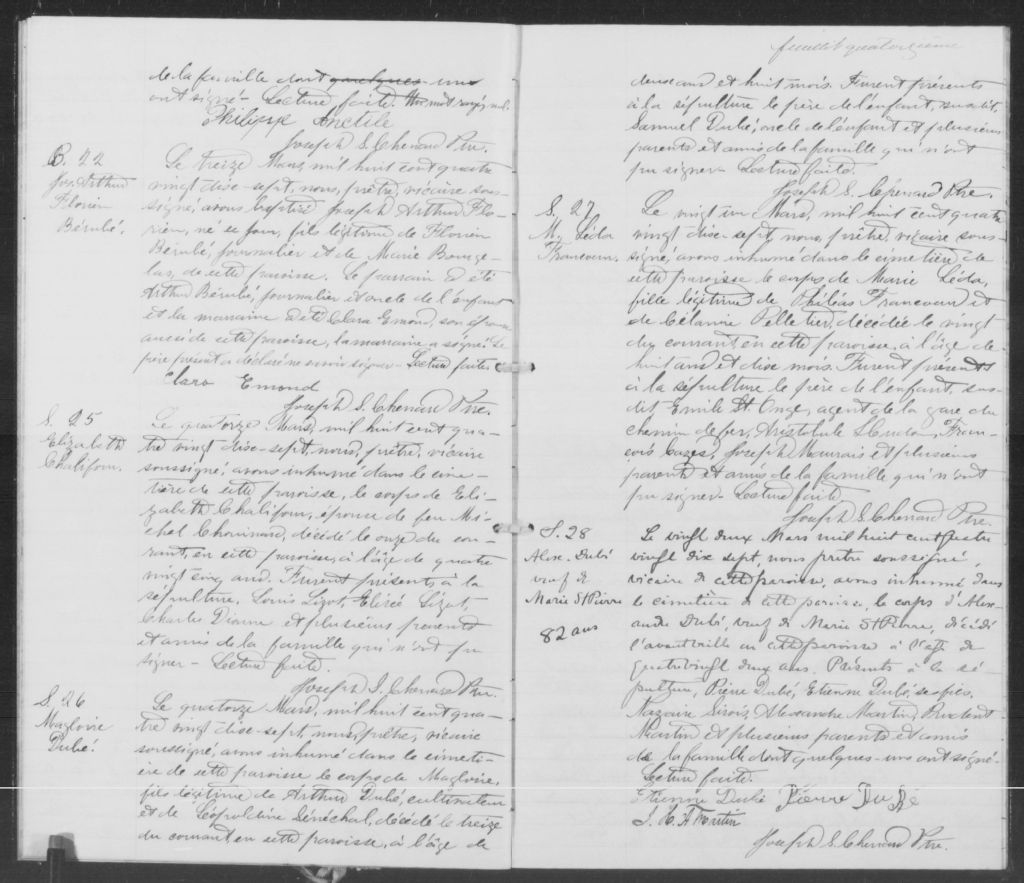 de la famille dont quelques uns
ont signé. Lecture faite. Un mot rayé nul.
Philippe Anctile
Joseph S. Chenard Ptre.
B. 22
Jos. Arthur
Florien
Bérubé.
Le treize Mars, mil huit cent quatre
vingt dise-sept, nous, prêtre, vicaire sous-
signé, avons baptisé Joseph Arthur Flo-
rien, né ce jour, fils légitime de Florien
Bérubé, journalier et de Marie Bouge-
las, de cette paroisse. Le parrain a été
Arthur Bérubé, journalier et oncle de l'enfant
et la marraine a été Clara Emond, son épouse
aussi de cette paroisse, la marraine a signé. Le
père présent a déclaré ne savoir signer. Lecture faite.
Clara Emond
Joseph S. Chenard Ptre.
S. 25
Elizabeth
Chalifour.
Le quatorze Mars, mil huit cent qua-
tre vingt dise-sept, nous, prêtre, vicaire
soussigné, avons inhumé dans le cime-
tière de cette paroisse, le corps de Eli-
zabeth Chalifour, épouse de feu Mi-
chel Chouinard, décédé le onze du cou-
rant, en cette paroisse, à l'âge de quatre
vingt cinq ans. Furent présents, à la
sépulture, Louis Lizot, Elisée Lizot,
Charles Dionne et plusieurs parents
et amis de la famille qui n'ont pu
signer - Lecture faite.
Joseph S. Chenard Ptre.
S. 26
Magloire
Dubé.
Le quatorze Mars, mil huit cent qua-
tre vingt dise-sept, nous, prêtre, vicaire
soussigné, avons inhumé dans le cimeti-
ère de cette paroisse le corps de Magloire,
fils légitime de Arthur Dubé, cultivateur
et de Léopoldine Sénéchal, décédé le treize
du courant en cette paroisse, à l'âge de
feuillet quatorzième
deux ans et huit mois. Furent présents
à la sépulture le père de l'enfant, susdit,
Samuel Dubé, oncle de l'enfant et plusieurs
parents et amis de la famille qui n'ont
pu signer. Lecture faite.
Joseph S. Chenard Ptre.
S. 27
M. Léda
Francoeur.
Le vingt un Mars, mil huit cent quatre
vingt dise-sept, nous, prêtre, vicaire sous-
signé, avons inhumé dans le cimetière de
cette paroisse le corps de Marie Léda,
fille légitime de Philéas Francoeur et
de Célanire Pelletier, décédée le vingt
du courant en cette paroisse, à l'âge de
huit ans et dise mois. Furent présents
à la sépulture le père de l'enfant, sus-
dit Emile St. Onge, agent de la gare du
chemin de fer, Aristobule Fran-
çois Cazes, Joseph Maurais et plusieurs
parents et amis de la famille qui n'ont
pu signer. Lecture faite.
Joseph S. Chenard Ptre.
S. 28
Alex. Dubé
veuf de
Marie St Pierre
82 ans
Le vingt deux Mars mil huit cent quatre
vingt dix sept, nous prêtre soussigné,
vicaire de cette paroisse, avons inhumé dans
le cimetière de cette paroisse, le corps d'Alex-
andre Dubé, veuf de Marie St Pierre, décédé
l'avant veille en cette paroisse à l'âge de
quatrevingt deux ans. Présents à la sé
pulture, Pierre Dubé, Etienne Dubé, ses fils,
Nazaire Sirois, Alexandre Martin, Prudent
Martin et plusieurs parents et amis
de la famille dont quelques-uns ont signé.
Lecture faite.
Etienne Dubé Pierre Dubé
J. A. Martin
Joseph S. Chenard Ptre.